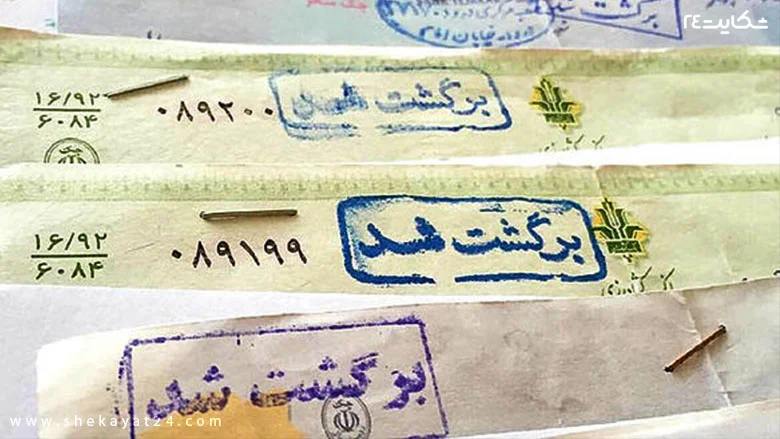 شکایت۲۴
برگشت
۱۶/۹۲
۶۰۸۴
۰۸۹۲۰۰
برگشت شد
۱۶/۹۲
۶۰۸۴
۰۸۹۱۹۹
برگشت شد
کشاورزی
برگشت شد
www.shekayat24.com